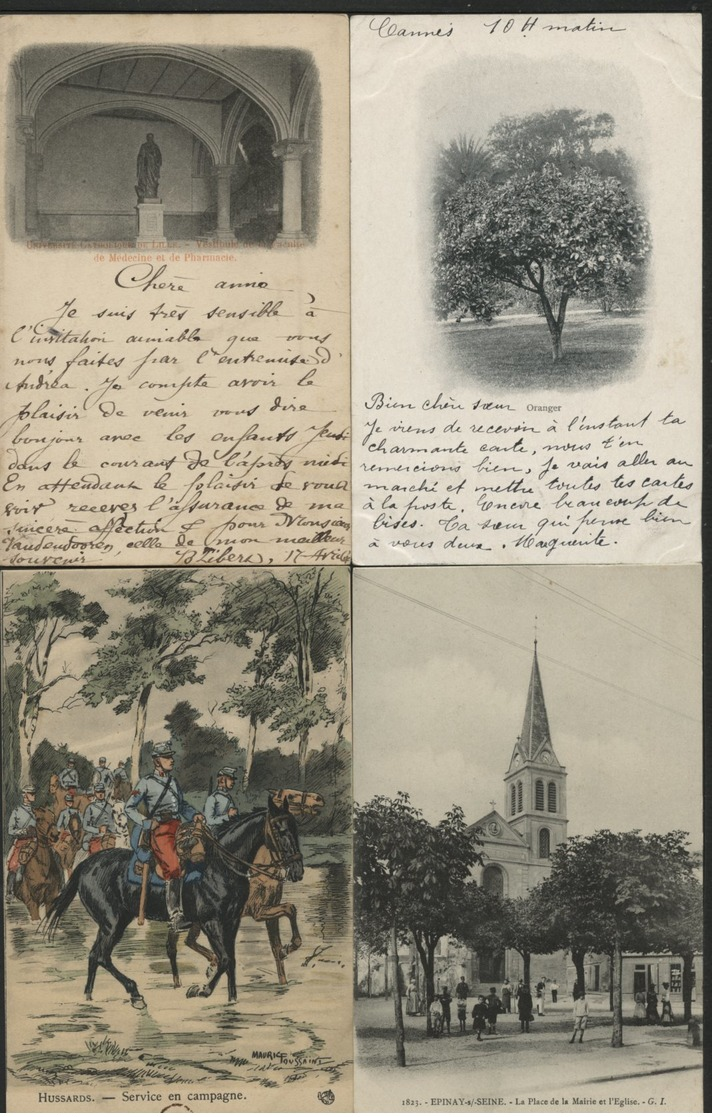 UNIVERSITÉ CATHOLIQUE DE LILLE. - Vestibule de la Faculté
de Médecine et de Pharmacie.
Chère amie
Je suis très sensible à
l'invitation aimable que vous
nous faites par l'entremise d'
Andréa. Je compte avoir le
plaisir de venir vous dire
bonjour avec les enfants Jeudi
dans le courant de l'après midi
En attendant le plaisir de vous
voir recevez l'assurance de ma
sincère affection & pour Monsieur
Vandendooren, celle de mon meilleur
souvenir 17 Avril
Cannes 10 H matin
Oranger
Bien chère sœur
Je viens de recevoir à l'instant ta
charmante carte, nous t'en
remercions bien, je vais aller au
marché et mettre toutes tes cartes
à la poste. Encore beaucoup de
bises. Ta sœur qui pense bien
à vous deux. Marguerite.
MAURICE
TOUSSAINT
HUSSARDS. — Service en campagne.
1823. - EPINAY-s/-SEINE. - La Place de la Mairie et l'Eglise. - G. I.